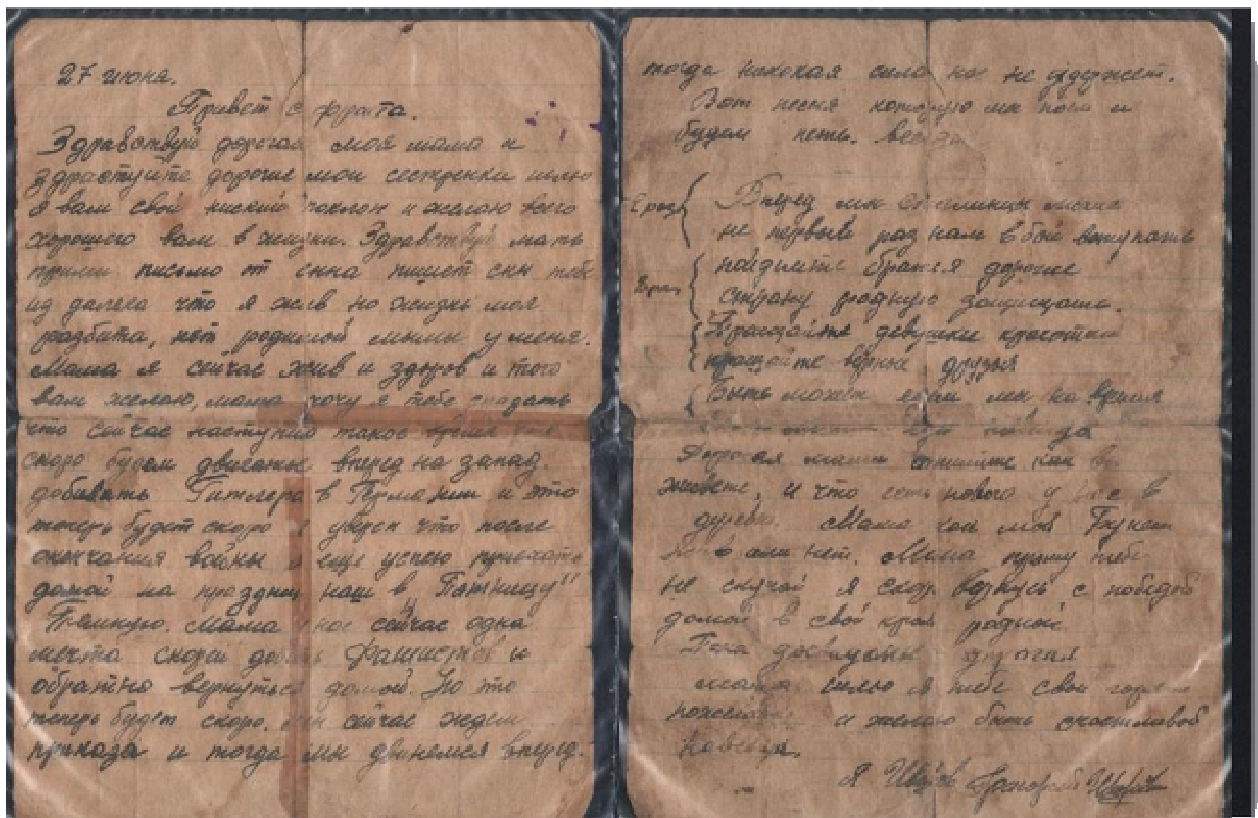 27 июня.
Привет с фронта.
Здравствуй дорогая моя мама и
здраствуйте дорогие мои сестренки шлю
я вам свой низкий поклон и желаю всего
хорошего вам в жизни. Здравствуй мать
прими письмо от сына пишет сын тебе
из далека что я жив но жизнь моя
разбита, нет родимой мамы у меня.
Мама я сейчас жив и здоров и того
вам желаю, мама хочу я тебе
что сейчас наступило такое время
скоро будем двигаться вперед на запад.
добивать Гитлера в Германии и это
теперь будет скоро я уверен что после
окончания войны я еще успею приехать
домой на праздник наш в Пятницу"
Мама нас сейчас одна
мечта скорей добить Фашистов и
обратно вернуться домой. Но это
теперь будет скоро. мы сейчас ждем
приказа и тогда мы двинемся вперед.
тогда никакая сила нас не удержет.
Вот песня которую мы поем и
будем петь всегда
Вперед мы
не первый раз нам в бой вступать
дорогие
страну родную защищать.
Прощайте девушки красотки
прощайте верные друзья
Быть может едем мы на время
Дорогая мама опишите как вы
живете, и что есть нового у вас в
деревне. Мама как мой
или нет. Мама прошу тебе
не скучай я скоро вернусь с победой
домой в свой край родной
Пока досвидание дорогая
мама шлю я тебе свой
и желаю быть счастливой
навсегда.
Я